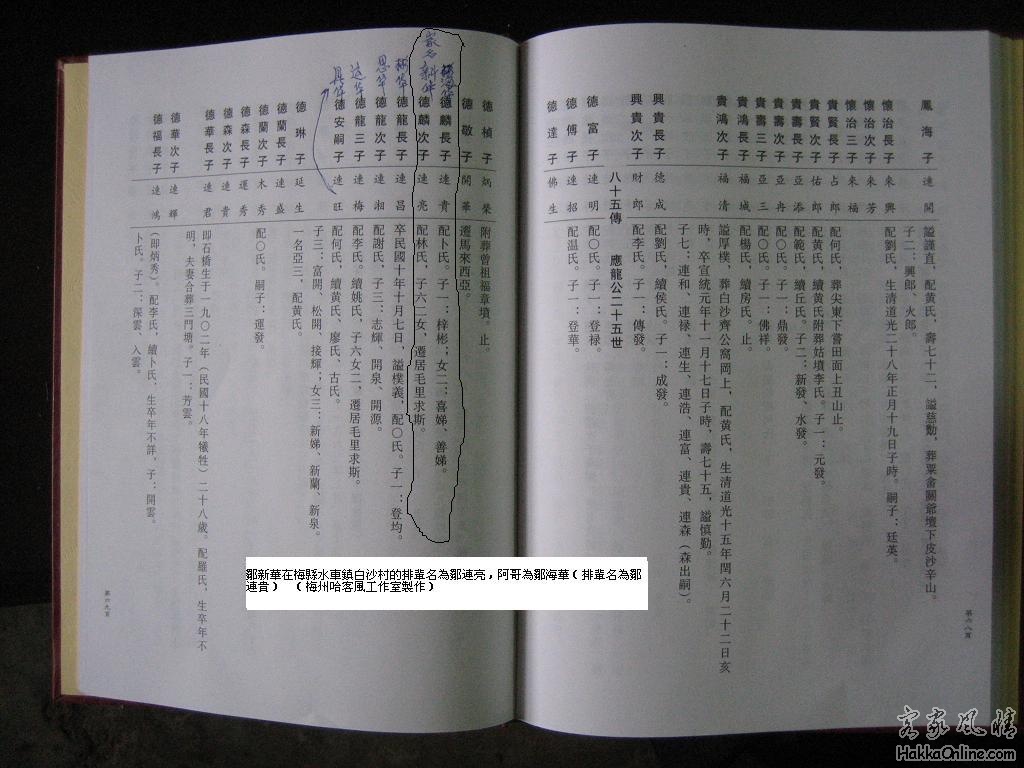 鳳海子 連開 謚謹直，配黃氏，壽七十二，謚慈勤，葬粟畬關爺壇下皮沙辛山。
子二：興郎、火郎。
懷治長子 來興 配劉氏，生清道光二十八年正月十九日子時。嗣子：廷英。
懷治次子 來芳
懷治三子 來福
貴賢長子 占郎 配何氏，葬尖東下嘗田面上丑山止。
貴賢次子 佑郎 配黃氏，續黃氏附葬姑墳李氏。子一：元發。
貴壽長子 亞添 配範氏，續丘氏。子二：新發、水發。
貴壽次子 亞冉 配〇氏。子一：鼎發。
貴壽三子 亞三 配〇氏。子一：佛祥。
貴鴻長子 福城 配楊氏，續房氏。止。
貴鴻次子 福清 謚厚樸，葬白沙齊公窩岡上，配黃氏，生清道光十五年閏六月二十二日亥
時，卒宣統元年十一月十七日子時，壽七十五，謚慎勤。
子七：連和、連禄、連生、連浩、連富、連貴、連森（森出嗣）。
興貴長子 德成 配劉氏，續侯氏。子一：成發。
興貴次子 財郎 配李氏。子一：傳發。
八十五傳 應龍公二十五世
德富子 連明 配〇氏。子一：登禄。
德傳子 連招 配温氏。子一：登華。
德達子 佛生
第六八頁
德楨子 炳榮 附葬曾祖福章墳。止。
德敬子 開華 遷馬來西亞。
德麟長子 連貴 配卜氏。子一：梓彬；女二：喜娣、善娣。
德麟次子 連亮 配林氏，子六二女，遷居毛里求斯。
家名 新華
德龍長子 連昌 卒民國十年十月七日，謚樸義，配〇氏。子一：登均。
德龍次子 連湘 配謝氏，子三：志輝、開泉、開源。
思華
德龍三子 連梅 配李氏。續姚氏，子六女二，遷居毛里求斯。
德安嗣子 連旺 配何氏，續黃氏、廖氏、古氏。
子三：富開、松開、接輝；女三：新娣、新蘭、新泉。
德琳子 延生 一名亞三，配黃氏。
德蘭長子 連盛
德蘭次子 木秀 配〇氏。嗣子：運發。
德森長子 運秀
德森次子 連貴
德華長子 連君 即石橋生于一九〇二年（民國十八年犧牲）二十八歲。配羅氏，生卒年不
明，夫妻合葬三門塘。子一：芳雲。
德華次子 連輝
德福長子 連鴻 （即炳秀）。配李氏，續卜氏，生卒年不詳，子：開雲。
卜氏。子二：深雲、入雲。
第六九頁
鄒新華在梅縣水車鎮白沙村的排輩名為鄒連亮，阿哥為鄒海華（排輩名為鄒
連貴） （梅州哈客風工作室製作）
客家風情
HakkaOnline.com